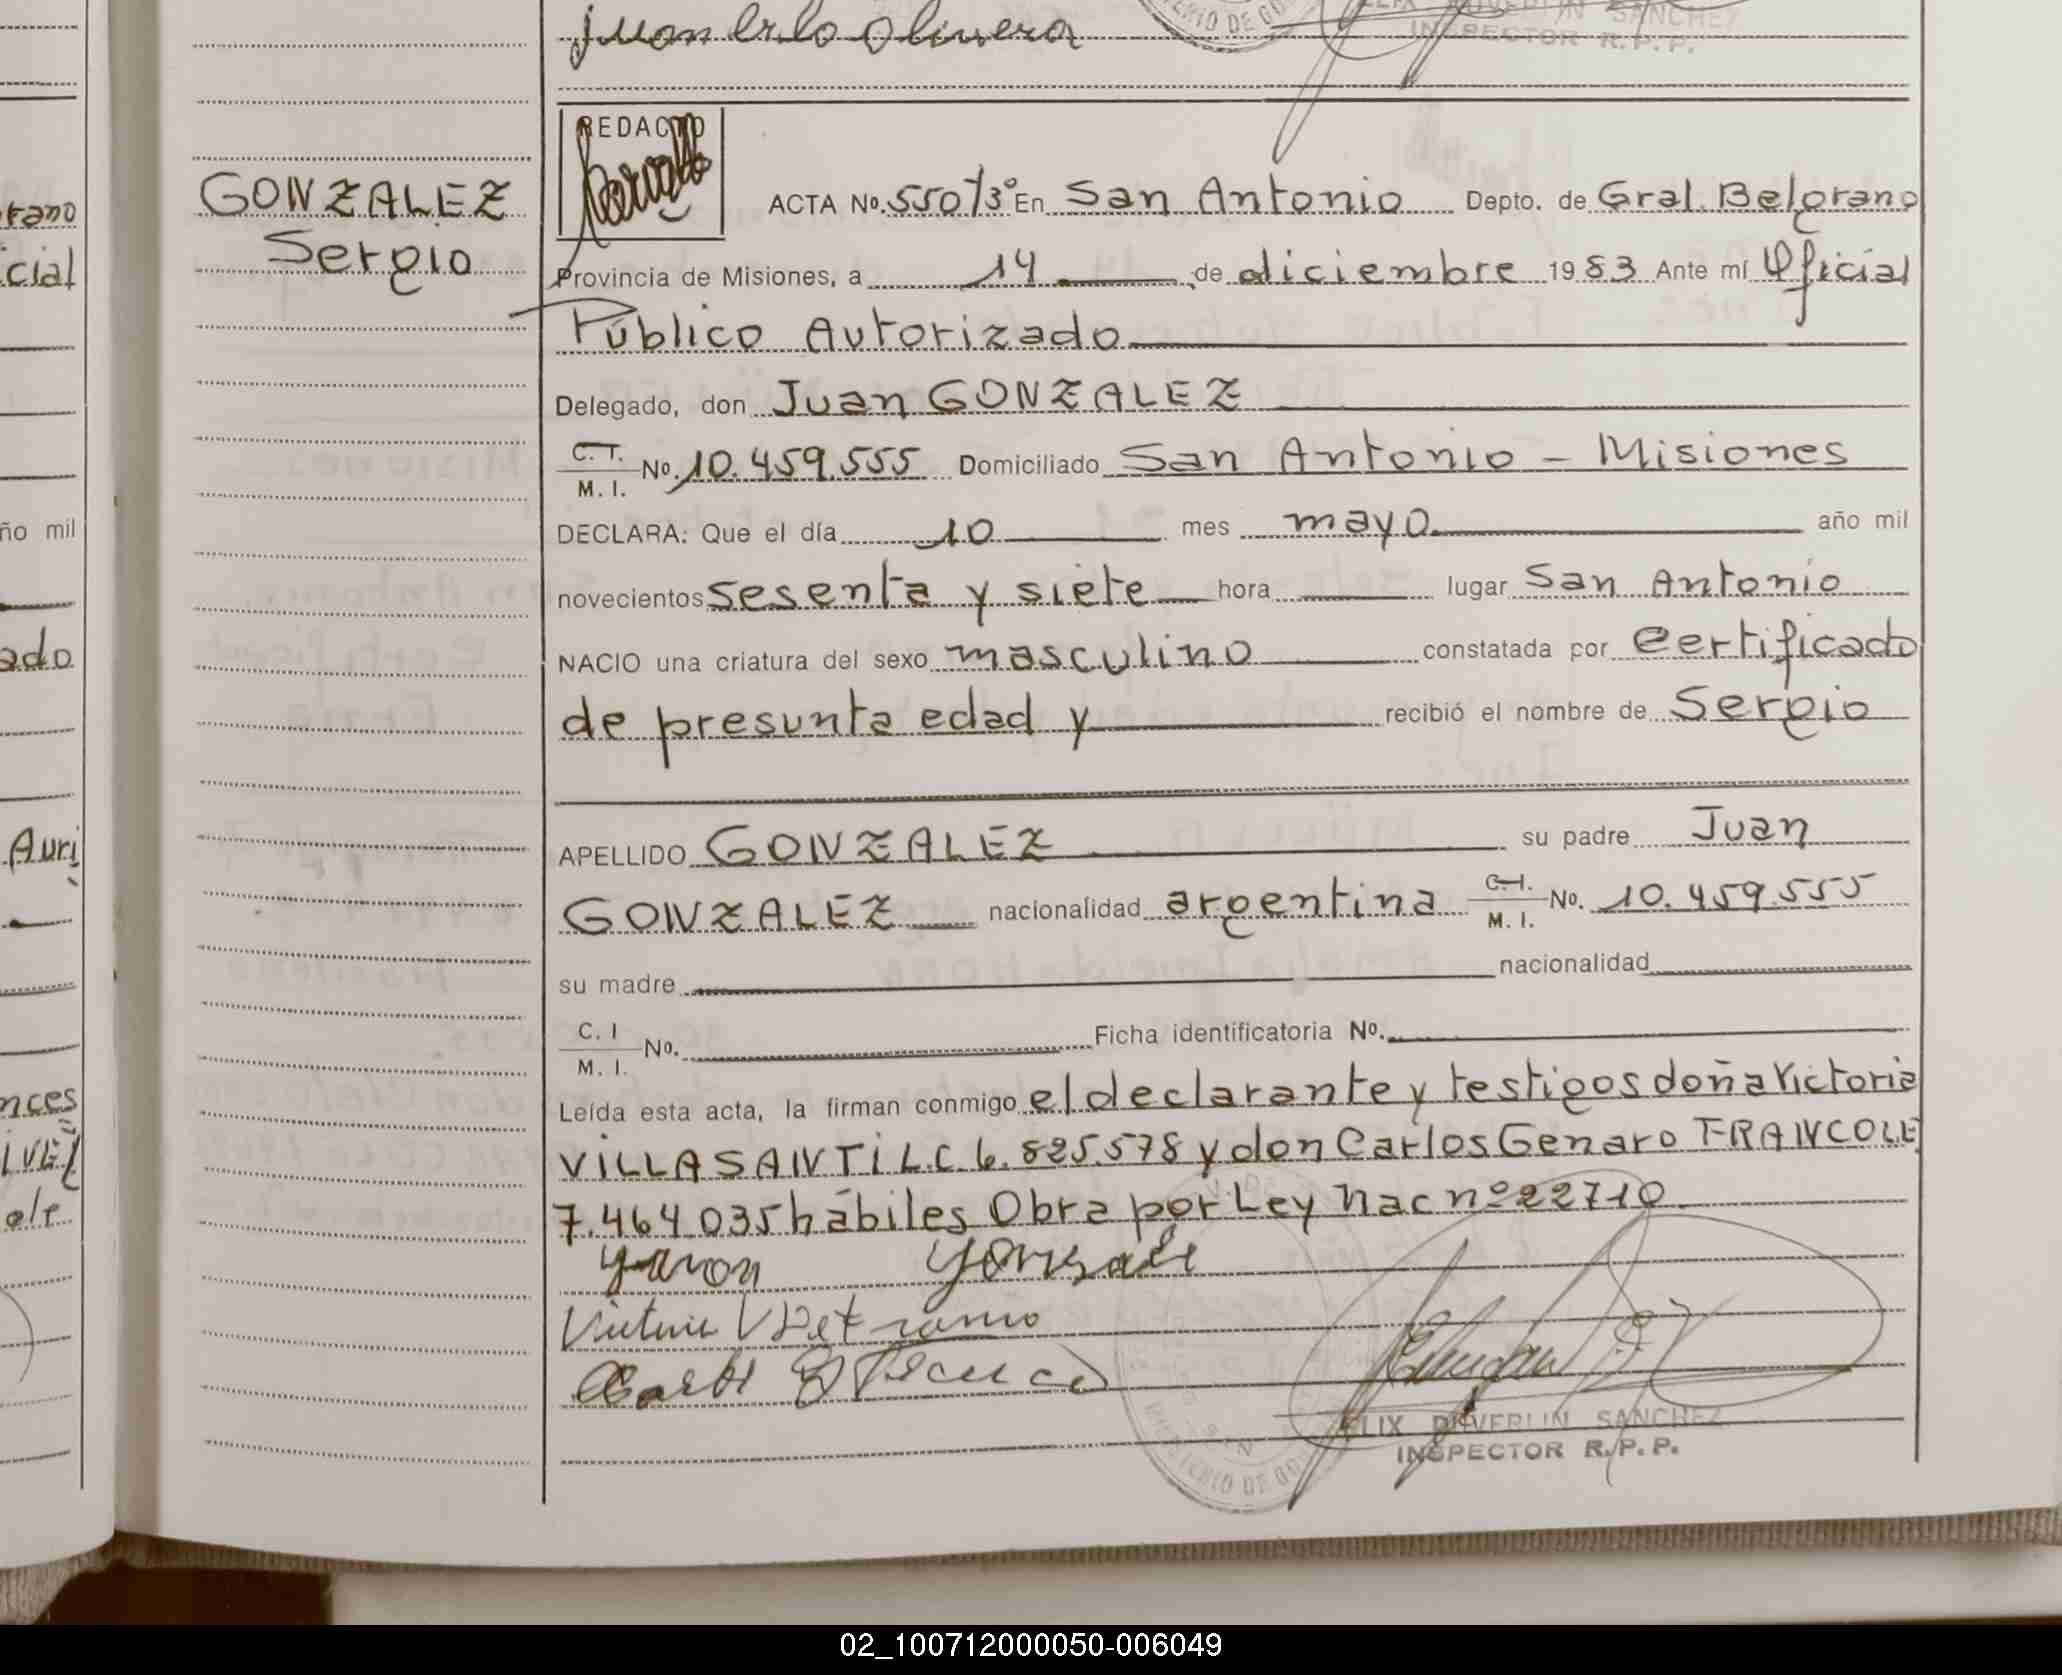 Juan Carlos Olivera
INSPECTOR R.P.P.
rano
cial
ño mil
ado
Auri
nces
GONZALEZ
Sergio
REDACTO
ACTA Nº. 550/3º En San Antonio Depto. de Gral. Belgrano
Provincia de Misiones, a 14 de diciembre 1983 Ante mí Oficial
Público Autorizado
Delegado, don Juan GONZALEZ
C. I.
M. I. Nº. 10.459.555 Domiciliado San Antonio - Misiones
DECLARA: Que el día 10 mes mayo año mil
novecientos sesenta y siete hora lugar San Antonio
NACIO una criatura del sexo masculino constatada por certificado
de presunta edad y recibió el nombre de Sergio
APELLIDO GONZALEZ su padre Juan
GONZALEZ nacionalidad argentina C.I. M. I. Nº. 10.459.555
su madre nacionalidad
C. I
M. I. Nº. Ficha identificatoria Nº.
Leída esta acta, la firman conmigo el declarante y testigos doña Victoria
VILLASANTI L.C. 6.825.578 y don Carlos Genaro FRANCOLE
7.464.035 hábiles Obra por Ley Nac nº 22710
FELIX DUVERLIN SANCHEZ
INSPECTOR R.P.P.
02_100712000050-006049